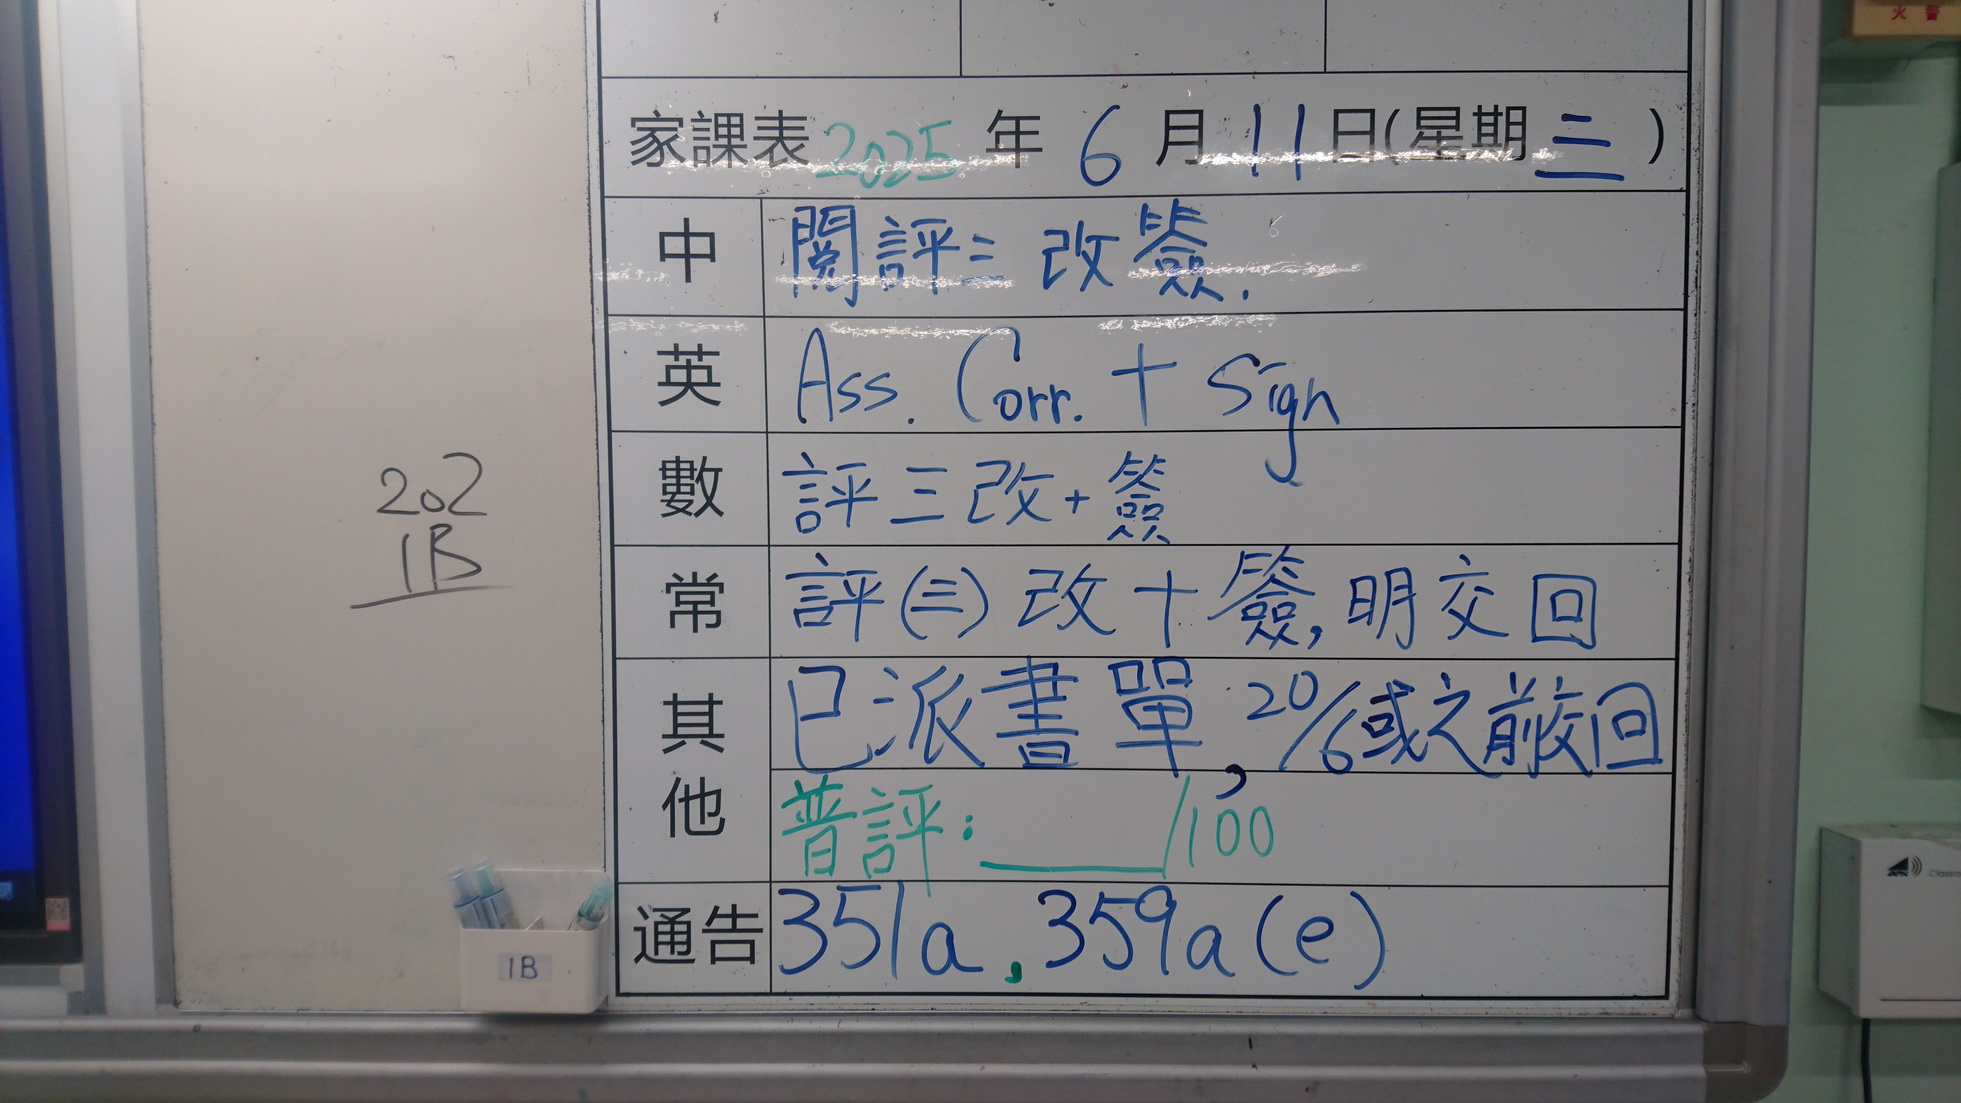 火警
家課表 2025 年 6 月 11 日(星期三)
中 閱評三 改簽.
英 Ass. Corr. + Sign
數 評三改+簽
常 評(三)改+簽,明交回
其他 已派書單,20/6或之前交回
普評:____/100
通告 351a,359a(e)
202
1B
1B